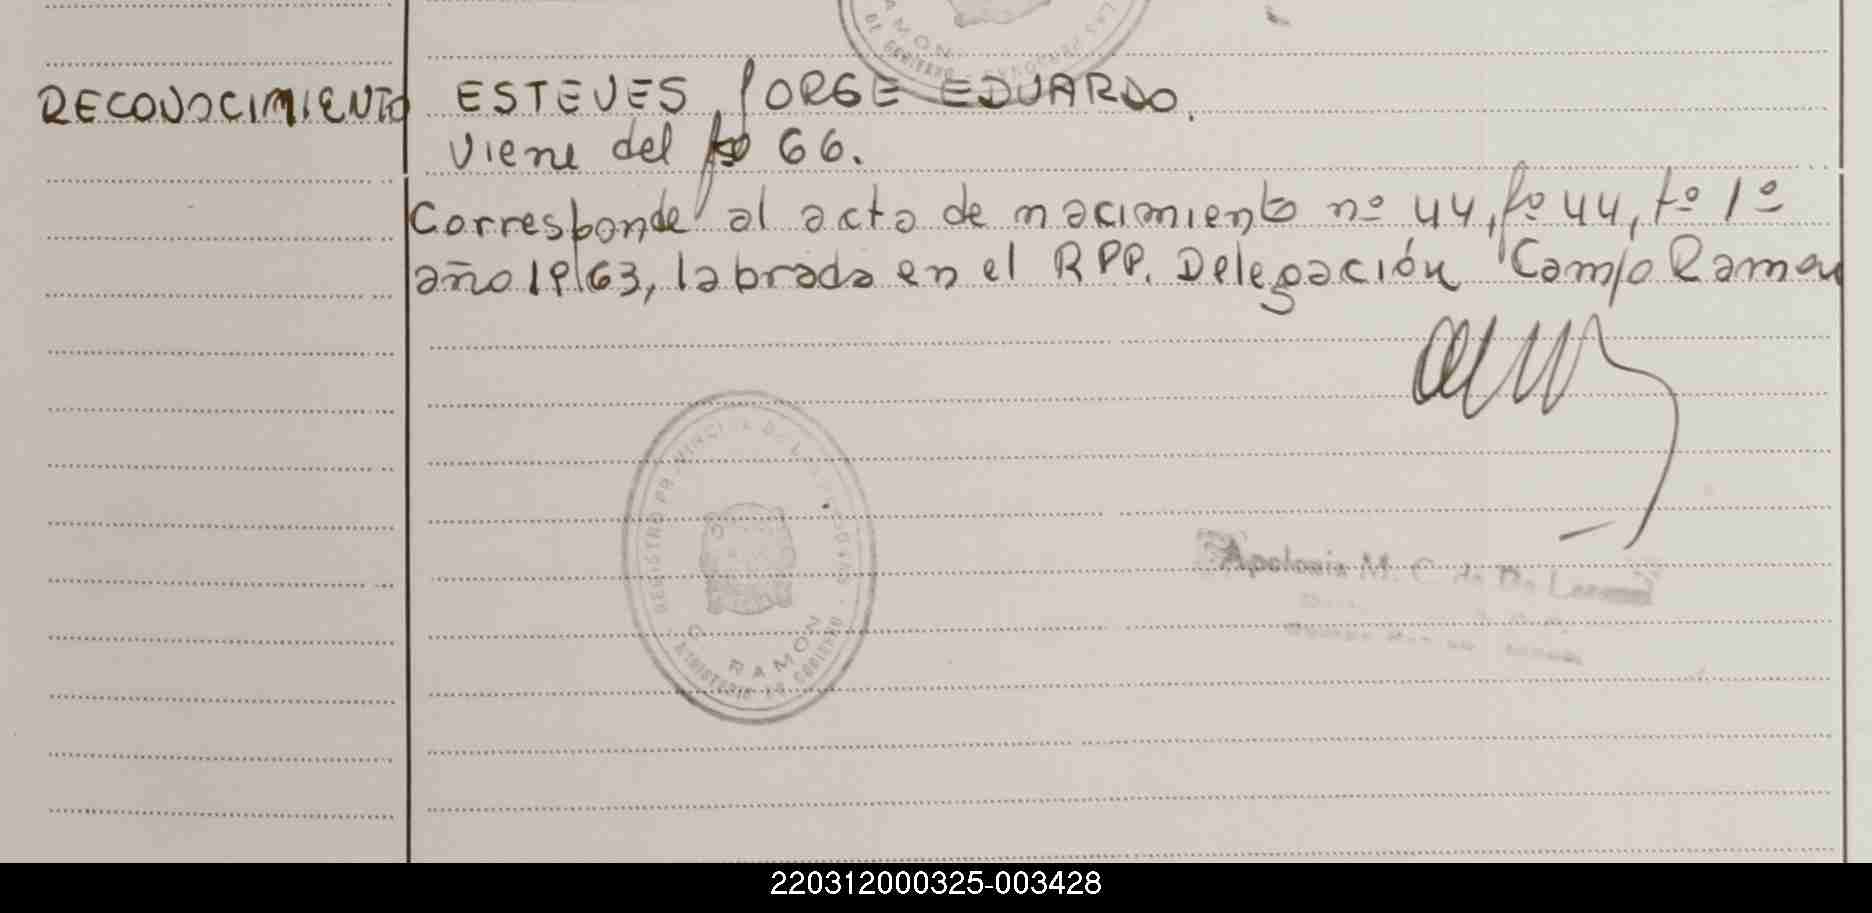 LAS PROVINCIA
RAMON
DE GOBIERNO
RECONOCIMIENTO ESTEVES, JORGE EDUARDO.
Viene del fo 66.
Corresponde al acta de nacimiento nº 44, fº 44, tº 1º
año 1963, labrada en el RPP. Delegación Campo Ramon
REGISTRO PROVINCIAL DE LAS PERSONAS
C. RAMON
MINISTERIO DE GOBIERNO
Apolonia M. C. de De
220312000325-003428